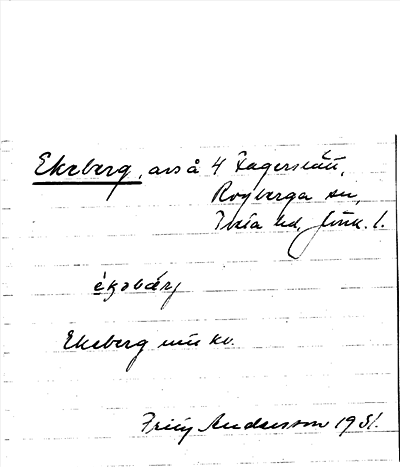 Ekeberg, avs å 4 Fagerslätt,
Rogberga sn,
Tveta hd, Jönk. l.
ékəbærj
Ekeberg
Andersson 1951.